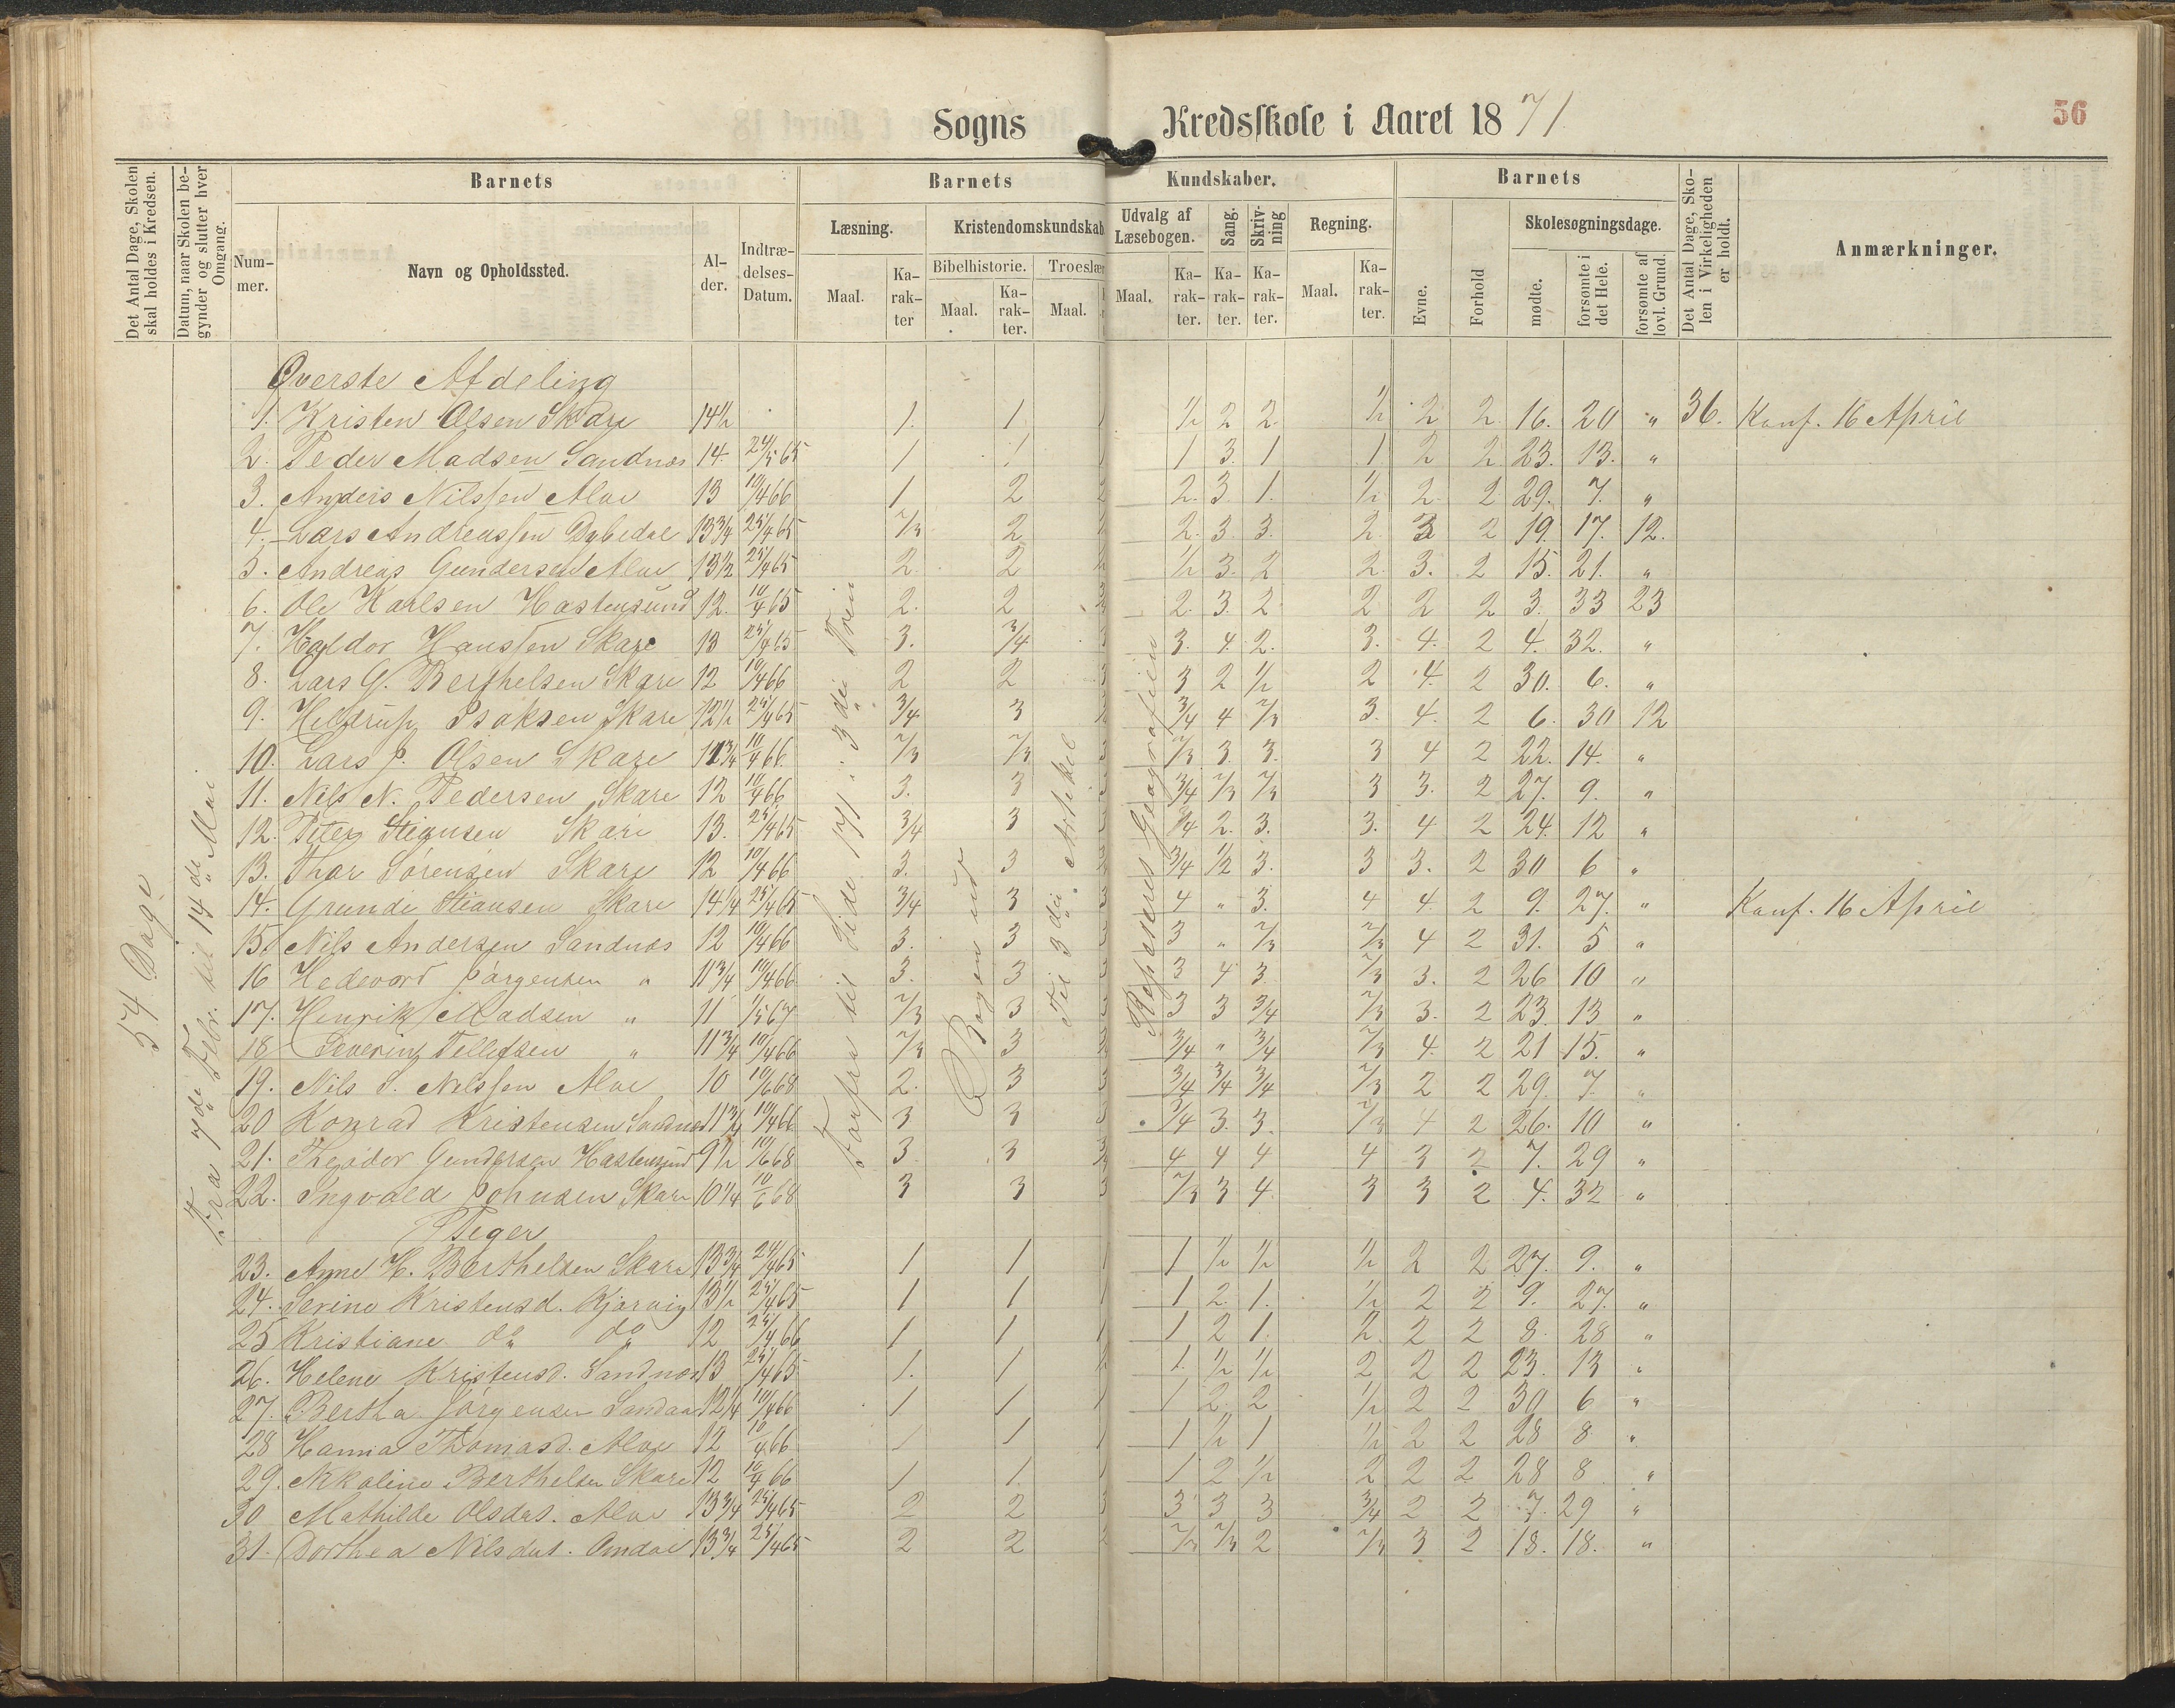 Sogns Kredsskole i Aaret 1871 56
Det Antal Dage, Skolen skal holdes i Kredsen.
Datum, naar Skolen begynder og slutter hver Omgang.
Barnets
Nummer.
Navn og Opholdssted.
Alder.
Indtrædelses-Datum.
Barnets Kundskaber.
Læsning.
Maal.
Karakter
Kristendomskundskab
Bibelhistorie.
Maal.
Karakter.
Troeslær
Maal.
Udvalg af Læsebogen.
Maal.
Karakter.
Sang.
Karakter.
Skrivning
Karakter.
Regning.
Maal.
Karakter.
Barnets
Evne.
Forhold
Skolesøgningsdage.
mødte.
forsømte i det Hele.
forsømte af lovl. Grund.
Det Antal Dage, Skolen i Virkeligheden er holdt.
Anmærkninger.
54 Dage
Fra 7de Febr. til 14de Mai
Forfra til Side 171 i 3die Trin
Bogen ud
Til 3die Artikel
Repeteret Geografien
Øverste Afdeling
1. Kristen Olsen Skare 14½ 1. 1 1 ½ 2 2. ½ 2 2. 16. 20 " 36. Konf. 16 April
2. Peder Madsen Sandnæs 14. 24/5 65 1 1 1 1 3. 1 1 2 2 23. 13. "
3. Anders Nilssen Alve 13 10/4 66 1 2 2. 3. 1. ½ 2 2 29. 7. "
4. Lars Andreassen Dybedal 13¾ 25/4 65 2/3 2 2. 3. 3. 2. 3 2 19. 17. 12.
5. Andreas Gundersen Alve 13½ 25/4 65 2. 2 ½ 3. 2 2. 3. 2 15. 21. "
6. Ole Karlsen Hastensund 12. 10/4 65 2. 2 2. 3. 2 2 2 2 3. 33 23
7. Haldor Hanssen Skare 13 25/4 65 3. 3/4 3. 4. 2. 3. 4. 2 4. 32. "
8. Lars G. Berthelsen Skare 12 10/4 66 2 2 3 2 ½ 2 4. 2 30. 6. "
9. Heldrup Isaksen Skare 12½ 25/4 65 3/4 3 3/4 4 2/3 3. 4. 2 6. 30 12
10. Lars P. Olsen Skare 11¾ 10/4 66 2/3 2/3 3 2/3 3. 3. 3 4 2 22. 14. "
11. Nils N. Pedersen Skare 12 10/4 66 3. 3 3/4 2/3 2/3 3 3. 2 27. 9. "
12. Peter Stiansen Skare 13. 25/4 65 3/4 3 3/4 2. 3. 3. 4 2 24. 12 "
13. Thor Sørensen Skare 12 10/4 66 3. 3 3/4 1/2 3. 3 3. 2 30 6 "
14. Grunde Stiansen Skare 14¼ 25/4 65 3/4 3 4 " 3. 4 4. 2 9. 27. " Konf. 16 April
15. Nils Andersen Sandnæs 12 10/4 66 3. 3 3 " 2/3 2/3 4 2 31. 5 "
16 Hedevard Jørgensen " 11¾ 10/4 66 3. 3 3 4 3 2/3 3. 2 26 10 "
17. Henrik Madsen " 11 1/5 67 2/3 3 3 3 3/4 2/3 3. 2 23. 13 "
18 Severin Tellefsen " 11¾ 10/4 66 2/3 3 3/4 " 3/4 2/3 4. 2 21 15. "
19. Nils S. Nilssen Alve 10 10/6 68 2. 3 3/4 3/4 3/4 2/3 2 2 29. 7. "
20 Konrad Kristensen Sandnæs 11¾ 10/4 66 3 3 3/4 3. 3. 2/3 4 2 26. 10 "
21. Theodor Gundersen Hastensund 9½ 10/6 68 3. 3 4 4 4 4 3 2 7. 29 "
22. Ingvald Johnsen Skare 10¼ 10/6 68 3 3 3 2/3 3 4 3 3 2 4. 32 "
Piger
23. Anne H. Berthelsen Skare 13¾ 24/4 65 1 1 1 ½ ½ ½ 2 2 27. 9. "
24. Serine Kristensd. Kjørvig 13½ 25/4 65 1 1 1 2. 1. ½ 2 2 9. 27. "
25 Kristiane do do 12 25/4 66 1 1 1 1 2 1. 2. 2 2 8. 28 "
26. Helene Kristensd. Sandnæs 13 25/4 65 1. 1 1. ½ ½ 2 2 2 23. 13 "
27. Bertha Jørgensen Sandaa 12¼ 10/4 66 1 1 1 1 2 2 ½ 2 2 30 6 "
28 Hanna Thomasd. Alve 12 10/4 66 1 1 1 1 ½ 1 ½ 2 2 28 8 "
29. Nikoline Berthelsen Skare 12 10/4 66 1 1. 1 1 2 ½ 2 2 2 28 8 "
30 Mathilde Olsdat. Alve 13¾ 25/4 65 2 2 3 3 3 3 3/4 2 2 7. 29 "
31. Dorthea Nilsdat. Omdal 13¾ 25/4 65 2 2 2/3 2/3 2 2/3 3 2 18. 18. "